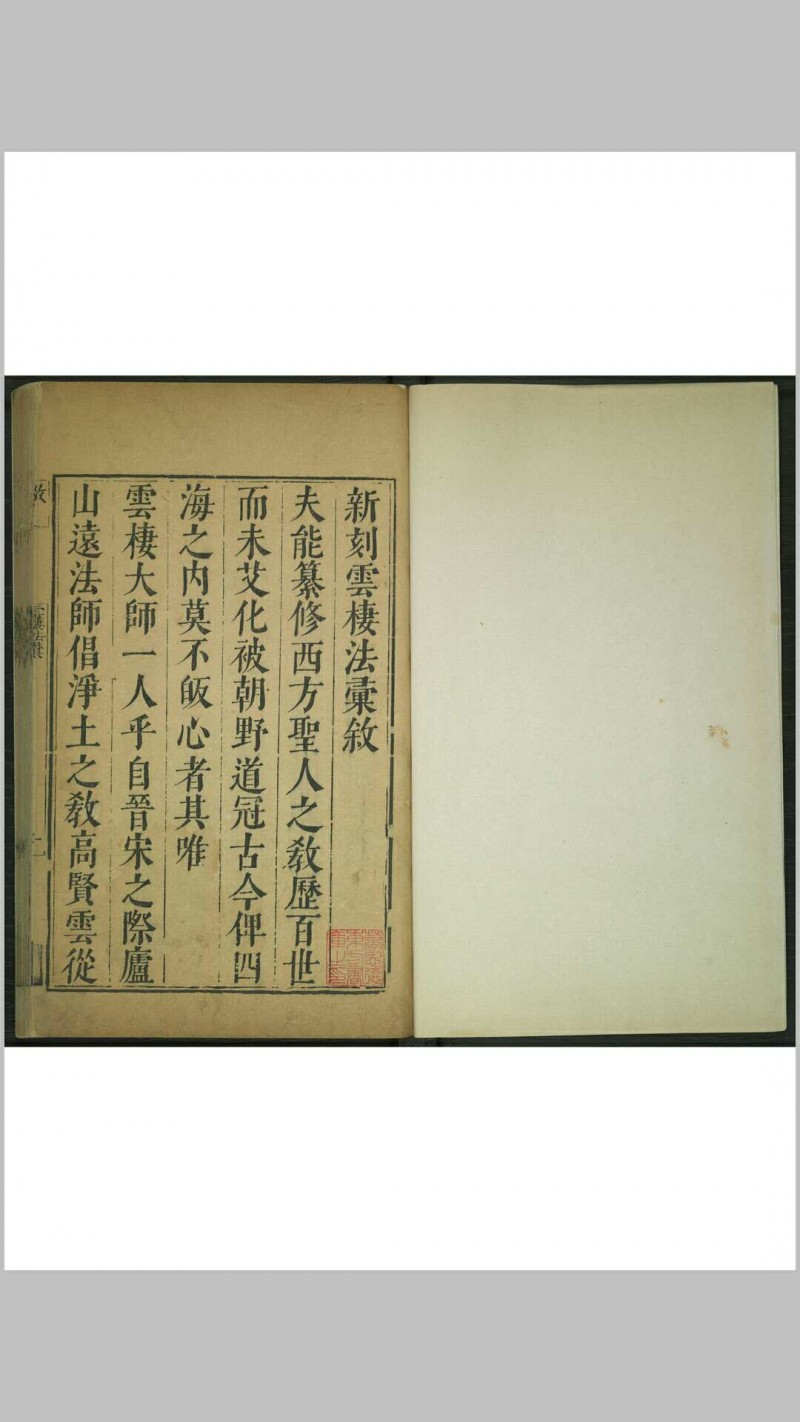 新刻雲棲法彙敘
夫能纂修西方聖人之教歷百世
而未艾化被朝野道冠古今俾四
海之内莫不皈心者其唯
雲棲大師一人乎自晉宋之際廬
山遠法師倡淨土之教高賢雲從